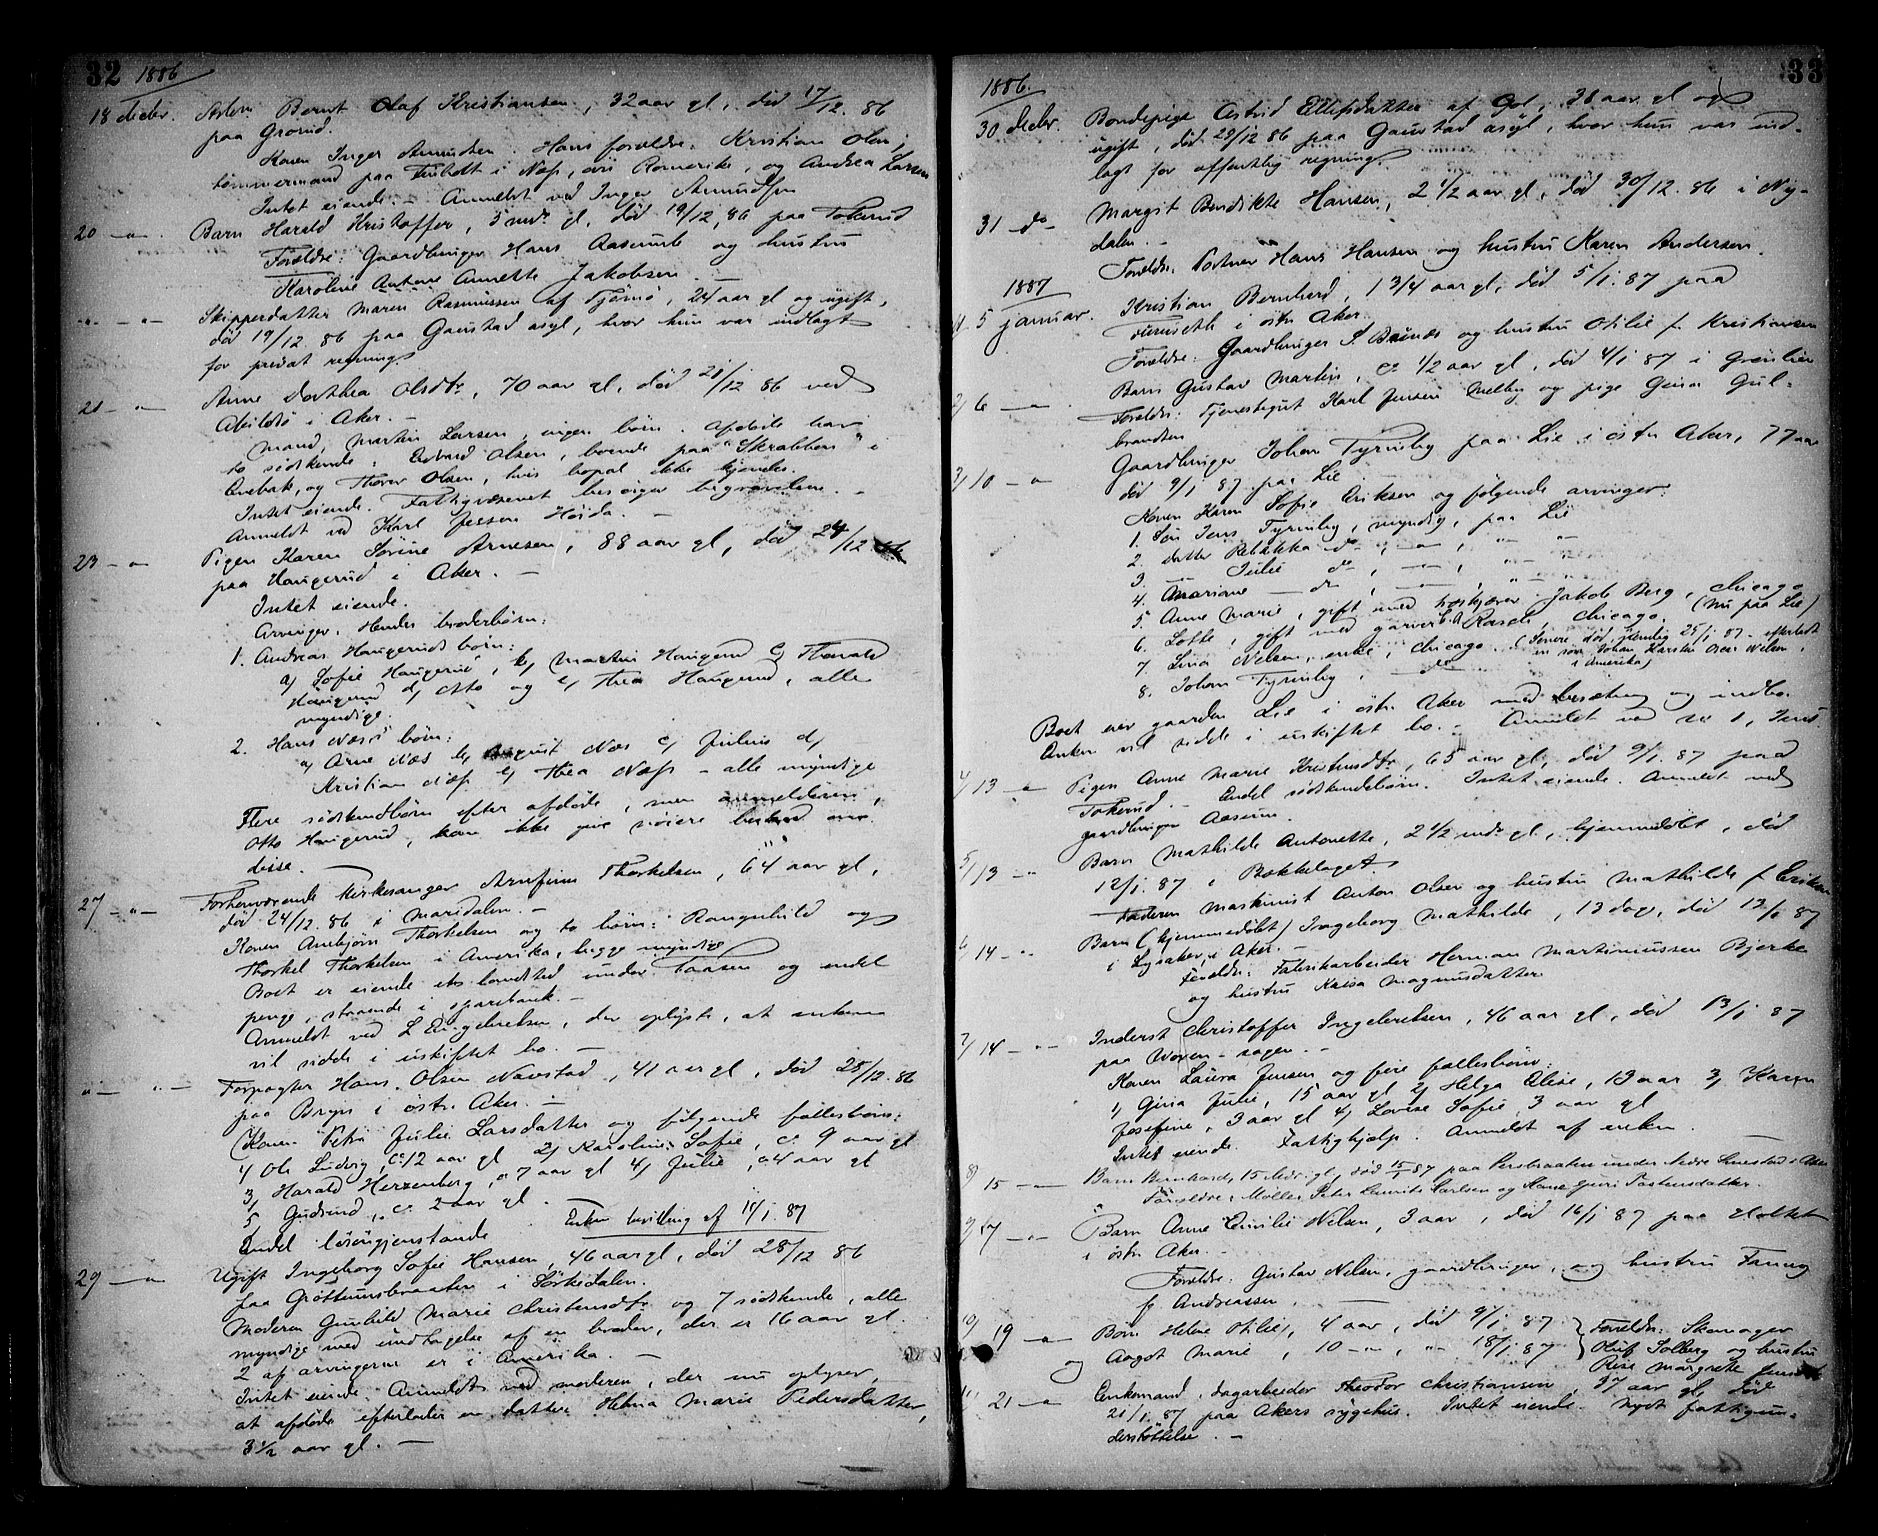 32 1886
18 decbr. Arbm Bernt Olaf Kristiansen, 32 aar gl, död 17/12. 86
paa Grorud.
Konen Inger Amundsen. Hans forældre: Kristian Olsen,
tömmermand paa i Næs, övr. Romerike, og Andrea Larsen
Intet eiende. - Anmeldt ved Inger Amundsen
20 -"- Barn Harald Kristoffer, 5 mdr gl, död 19/12. 86 paa Tokerud
Forældre: Gaardbruger Hans Aaserud og hustru
Karoline Antone Annette Jakobsen. -
-"- -"- Skipperdatter Maren Rasmussen af Tjömö, 24 aar gl og ugift,
död 19/12 86 paa Gaustad asyl, hvor hun var indlagt
for privat regning.
21 -"- Anne Dorthea Olsdtr, 70 aar gl, död 21/12 86 ved
Abildsö i Aker. -
Mand, Martin Larsen, ingen börn. Afdöde har
to södskende: Edvard Olsen, boende paa "Skrabben" i
Enebak, og Thorer Olsen, hvis bopæl ikke kjendes.
Intet eiende. Fattigvæsenet besörger begravelsen. -
Anmeldt ved Karl Jessen Höida. -
23 -"- Pigen Karen Sörine Arnesen, 88 aar gl, död 24/12 86
paa Haugerud i Aker. -
Intet eiende.
Arvinger: Hendes broderbörn:
1. Andreas Haugeruds börn:
a) Sofie Haugerud, b) Martin Haugerud c) Thorvald
Haugerud d) Otto og e) Thea Haugerud, alle
myndige.
2. Hans Næs's börn:
a) Arne Næs b) August Næs c) Julius d)
Kristian Næss e) Thea Næss - alle myndige
Flere södskendbörn efter afdöde, men anmelderen,
Otto Haugerud, kan ikke give nöiere besked om
disse. -
27 -"- Forhenværende kirkesanger Arnfinn Thorkelsen, 64 aar gl,
död 24/12. 86 i Maridalen. -
Konen Anbjörn Thorkelsen og to börn: Rangnhild og
Thorkel Thorkelsen i Amerika, begge myndige
Boet er eiende et landsted under Taasen og endel
penge, staaende i sparebank. -
Anmeldt ved L Engebretsen, der oplyste, at enken
vil sidde i uskiftet bo. -
-"- -"- Forpagter Hans Olsen Navestad, 41 aar gl, död 25/12. 86
paa Bryn i östr. Aker. -
Konen Petra Julie Larsdatter og fölgende fællesbörn:
1) Ole Ludvig, ca 12 aar gl 2) Karoline Sofie, ca 9 aar gl
3) Harald Herzenberg, " 7 aar gl 4) Julie, " 4 aar gl
5 Gudrund, ca 2 aar gl.
Endel lösöregjenstande Enken bevilling af 11/1. 87
29 -"- Ugift Ingeborg Sofie Hansen, 46 aar gl, död 28/12 86
paa Gröttumsbraaten i Sörkedalen.
Moderen Gunhild Marie Christensdtr og 7 södskende, alle
myndige med undtagelse af en broder, der er 16 aar gl.
2 af arvingerne er i Amerika. -
Intet eiende. Anmeldt ved moderen, der nu oplyser,
at afdöde efterlader en datter Helma Marie Pedersdatter,
3 1/2 aar gl. -
33
1886.
30 decbr. Bondepige Astrid Ellefsdatter af Gol, 38 aar gl og
ugift, död 29/12 86 paa Gaustad asyl, hvor hun var ind-
lagt for offentlig regning.
31 do- Margit Bendikte Hansen, 2 1/2 aar gl, död 30/12. 86 i Ny-
dalen. -
Forældre: Hans Hansen og hustru Karen Andersen.
1887
1/ 5 januar. Kristian Bernhard, 1 3/4 aar gl, död 5/1. 87 paa
Furuseth i östr Aker.
Forældre: Gaardbruger S. og hustru Otilie f. Kristiansen
2/ 6 -"- Barn Gustav Martin, ca 1/2 aar gl, död 4/1 87 i Grönlien
Forældre: Tjenestegut Karl Jensen Melby og pige Gina Gul-
brandsen
3/ 10 -"- Gaardbruger Johan Tyrmby paa Lie i östr Aker, 77 aar
död 9/1 87 paa Lie. -
Konen Karen Sofie Eriksen og fölgende arvinger:
1. Sön Jens Tyrmby, myndig, paa Lie
2. datter Rebekka do, -"-, "- "-
3. - Julie do, -"-, "- "-
4. Mariane - do, -"-, "- "-
5. Anne Marie, gift med Jakob Berg, Chicago
6. Lotte, gift med garver Rasch, Chicago. (Nu paa Lie)
7. Lina Nelsen, enke, Chicago. (Senere död, nemlig 25/1 87 - efterladt
en sön Johan Karsten Oscar Nelsen
i Amerika)
8. Johan Tyrmby, - do -
Boet eier gaarden Lie i östr Aker med besætning og indbo.
Enken vil sidde i uskiftet bo. - Anmeldt ved No 1, Jens
4/ 13 -"- Pigen Anne Marie Kristensdtr, 65 aar gl, död 9/1. 87 paa
Tokerud. - Endel södskendebörn. Intet eiende. Anmeldt ved
gaardbruger Aaserud.
5/ 13 -"- Barn Mathilde Antonette, 2 1/2 mdr gl, hjemmedöbt, död
12/1. 87 i Bækkelaget.
Faderen Maskinist Anton Olsen og hustru Mathilde f. Eriksen
6/ 14 -"- Barn (hjemmedöbt) Ingeborg Mathilde, 13 dage, död 12/1 87
i Lysaker, i Aker. -
Forældre: Fabrikarbeider Herman Martinussen Bjerke
og hustru Kaisa Magnusdatter
7/ 14 -"- Inderst Christoffer Ingebretsen, 46 aar gl, död 13/1 87
paa Woxen - sagen. -
Konen Laura Jensen og fire fællesbörn:
1) Gina Julie, 15 aar gl 2) Helga Elise, 13 aar 3) Karen
Josefine, 3 aar gl 4) Lovise Sofie, 3 aar gl
Intet eiende. Fattighjelp. Anmeldt af enken. -
8/ 15 -"- Barn Bernhard, 15 Mdr gl, död 15/1 87 paa Persbraaten under Nedre i Aker
Forældre: Möller Peter Laurits Carlsen og Kone Guri Tostensdatter.
9/ 17 -"- Barn Anne Emilie Nilsen, 3 aar, död 16/1 87 paa Holtet
i östr Aker. -
Forældre: Gustav Nilsen, gaardbruger, og hustru Fanny
f. Andreassen. -
10/ 19 -"- Barn Helene Otilie, 4 aar, död 9/1. 87 } Forældre: Skomager
og Aagot Marie, 10 -"-, -"- 18/1. 87 Oluf Solberg og hustru
Rise Margrethe
11/ 21 -"- Enkemand, dagarbeider Theodor Christiansen, 37 aar gl, död
21/1. 87 paa Akers sygehus. Intet eiende. Nydt fattigun-
derstöttelse. -